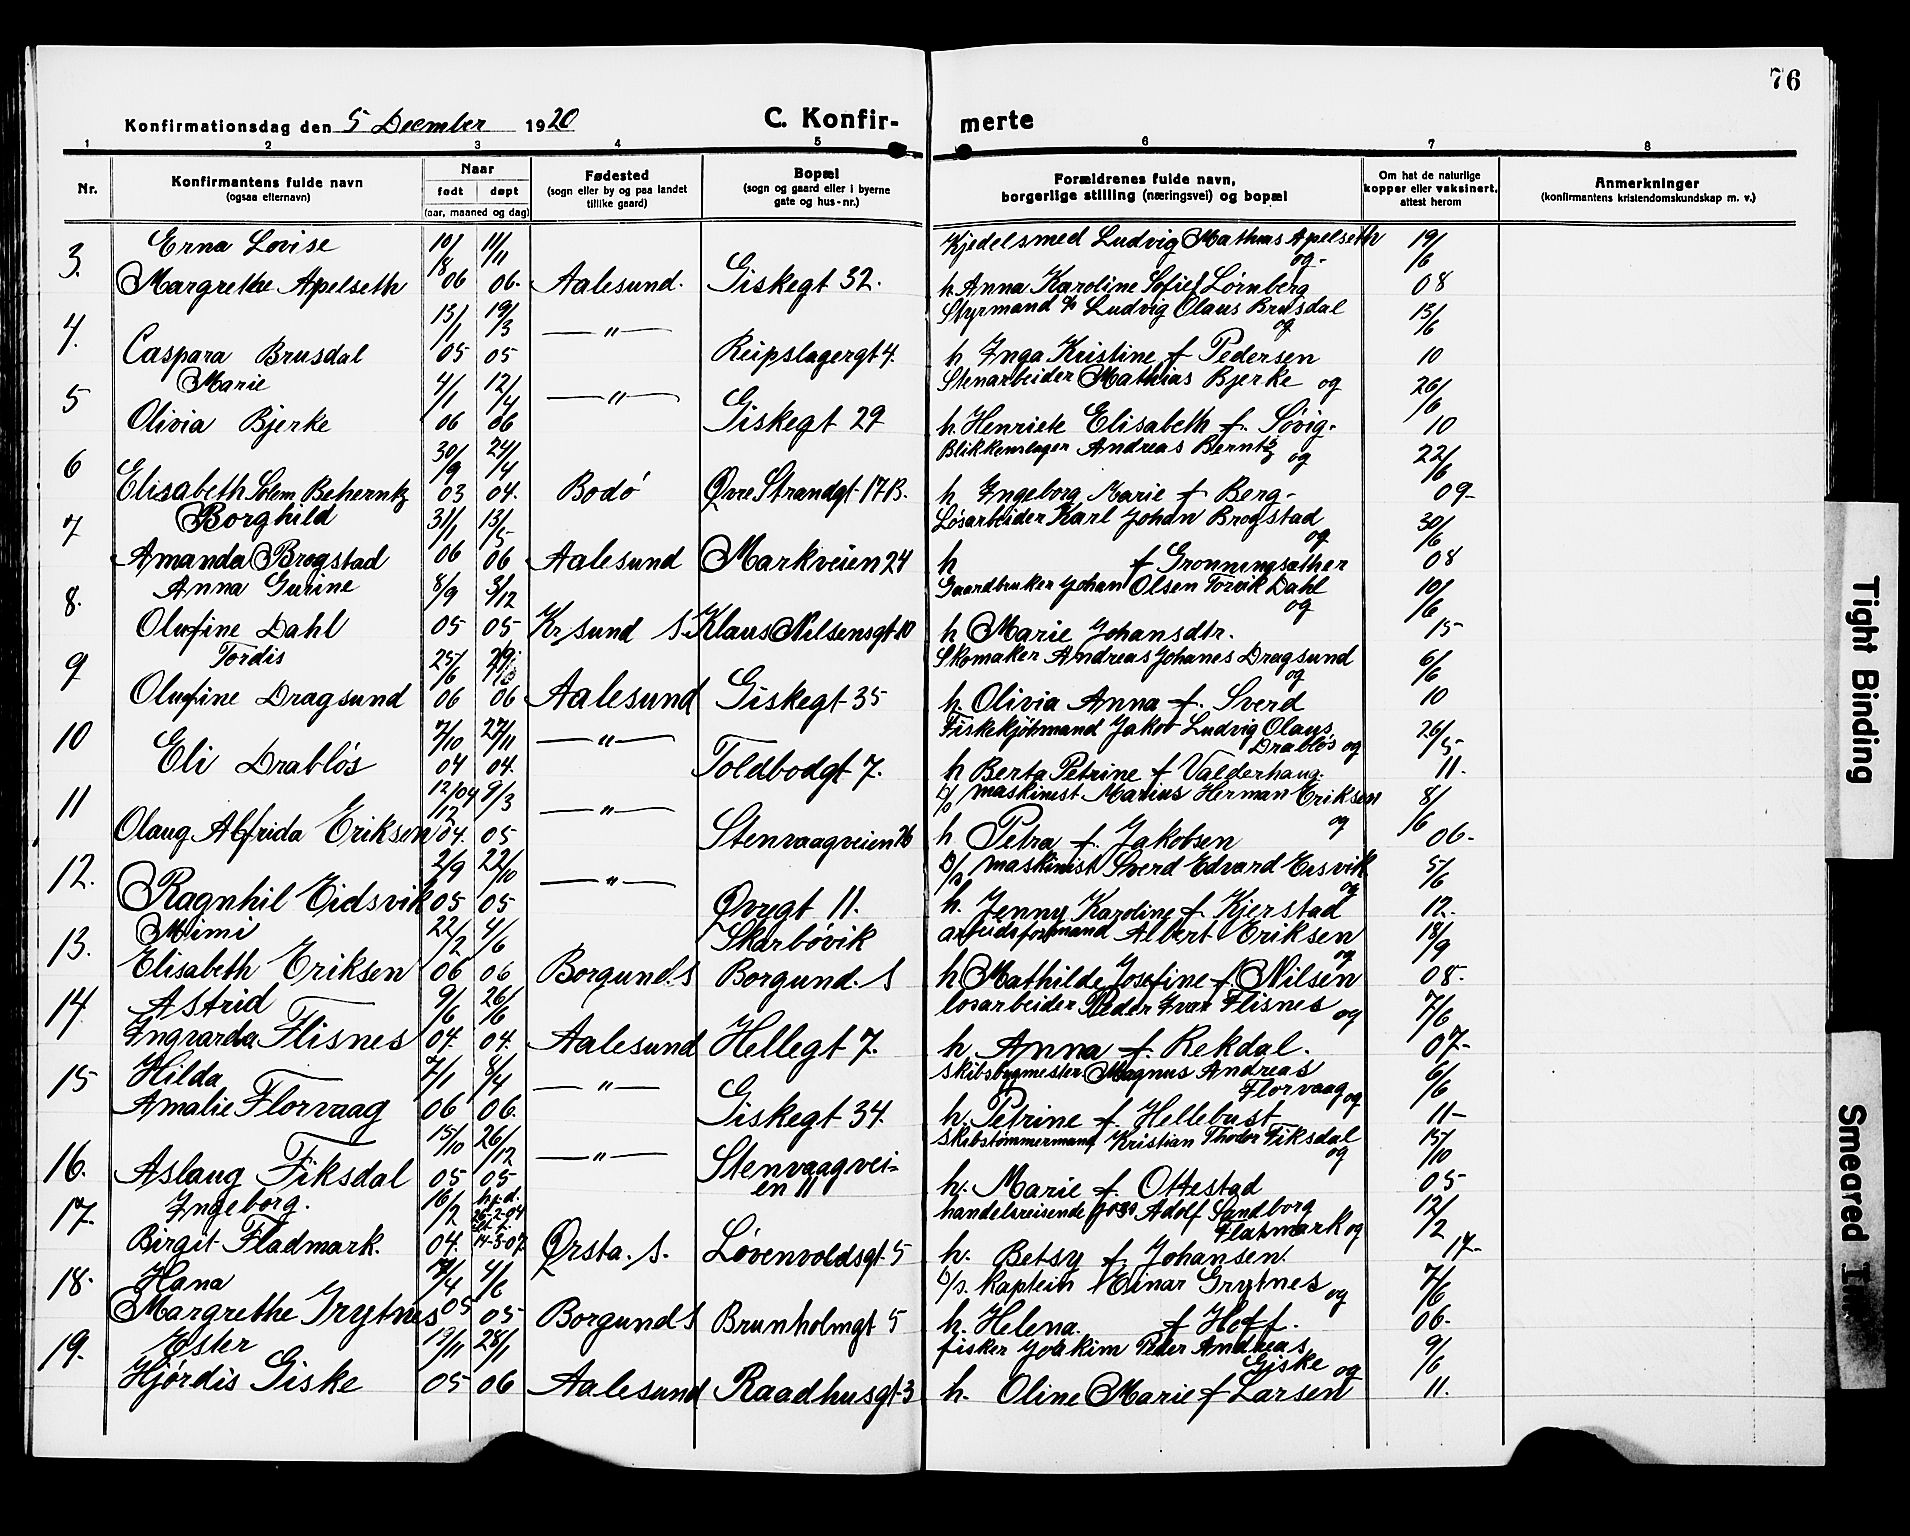 76
Konfirmationsdag den 5 December 1920
C. Konfirmerte
1 2 3 4 5 6 7 8
Nr.
Konfirmantens fulde navn
(ogsaa efternavn)
Naar
født døpt
(aar, maaned og dag)
Fødested
(sogn eller by og paa landet
tillike gaard)
Bopæl
(sogn og gaard eller i byerne
gate og hus-nr.)
Forældrenes fulde navn,
borgerlige stilling (næringsvei) og bopæl
Om hat de naturlige
kopper eller vaksinert,
attest herom
Anmerkninger
(konfirmantens kristendomskundskap m. v.)
3. Erna Lovise 10/18 11/11 Kjedelsmed Ludvig Mathias Apelseth og 19/6
Margrethe Apelseth 06 06. Aalesund. Giskegt 32. h. Anna Karoline Sofie f Lørnberg 08
4. 13/1 19/3 —"— Styrmand Ludvig Olaus Brusdal og 13/6
Caspara Brusdal 05 05 Reipslagergt 4. h Inga Kristine f Pedersen 10
5 Marie 4/1 12/4 —"— Stenarbeider Mathias Bjerke og 26/6
Olivia Bjerke 06 06 Giskegt 29 h. Henriete Elisabeth f. Søvig. 10
6 30/9 24/4 Blikkenslager Andreas Berntz og 22/6
Elisabeth Solem Beherntz 03 04. Bodó Øvre Strandgt 17B. h Ingeborg Marie f Berg- 09-
7 Borghild 31/1 13/5 Løsarbeider Karl Johan Brogstad og 30/6
Amanda Brogstad 06 06 Aalesund Markveien 24 h f Gronningsæther 08
8. Anna Gurine 8/9 3/12 Gaardbruker Johan Olsen Torvik Dahl og 10/6
Olufine Dahl 05 05 Kr sund S. Klaus Nilsensgt 10 h Marie Johansdtr. 15
9 Tordis 25/6 Skomaker Andreas Johanes Dragsund og 6/6
Olufine Dragsund 06 06 Aalesund Giskegt 35 h. Olivia Anna f. Sverd 10
10 7/10 27/11 —"— Fiskekjøbmand Jakob Ludvig Olaus Drabløs og 26/5
Eli Drabløs 04 04. Toldbodgt 7. h Berta Petrine f Valderhaug. 11.
11 12/04 12 9/3 —"— D/s maskinest. Marius Herman Eriksen og 8/6
Olaug Alfrida Eriksen 04. 05 Stenvaagveien h Petra f. Jakobsen 06-
12. 2/9 22/10 —"— D/s maskinist Sverd Edvard Eisvik og 5/6
Ragnhil Eidsvik 05 05 Øvregt 11. h. Jenny Karoline f. Kjerstad 12.
13. Mimi 22/2 4/6 Skarbøvik arbeidsformand Albert Eriksen og 18/9
Elisabeth Eriksen 06 06 Borgund. S Borgund. S h Mathilde Josefine f Nilsen 08.
14. Astrid 9/6 26/6 løsarbeider Peder Ivar Flisnes og 7/6
Ingvarda Flisnes 04. 04. Aalesund Hellegt 7. h. Anna f. Rekdal. 07-
15 Hilda 7/1 8/4 —"— skibsbygmester. Magnus Andreas Florvaag og 6/6
Amalie Florvaag 06 06. Giskegt 34. h. Petrine f Hellebust 11-
16. 15/10 26/12 —"— skibstømmermand Kristian Thodor Fiksdal og 15/10
Aslaug Fiksdal 05 05 Stenvaagveien 11 h. Marie f. Ottestad 05
17. Ingeborg. 16/2 hj.d. 26-2-04 handelsreisende Adolf Sandborg Flatmark og 12/2
Birgit Fladmark. 04. 14-3-07. Ørsta. S. Løvenvoldsgt 5 h. Betsy f Johansen. 17-
18. Hana 4/6 D/s. kaptein Einar Grytnes og 7/6
Margrethe Grytnes 05 05 Borgund S Brunholmgt 5 h. Helena f Hoff. 06-
19. Ester 19/11 28/1 fisker Joakim Peter Andreas Giske og 9/6
Hjørdis Giske 05 06 Aalesund Raadhusgt 3 h. Oline Marie f Larsen 11.
Tight Binding
Smeared